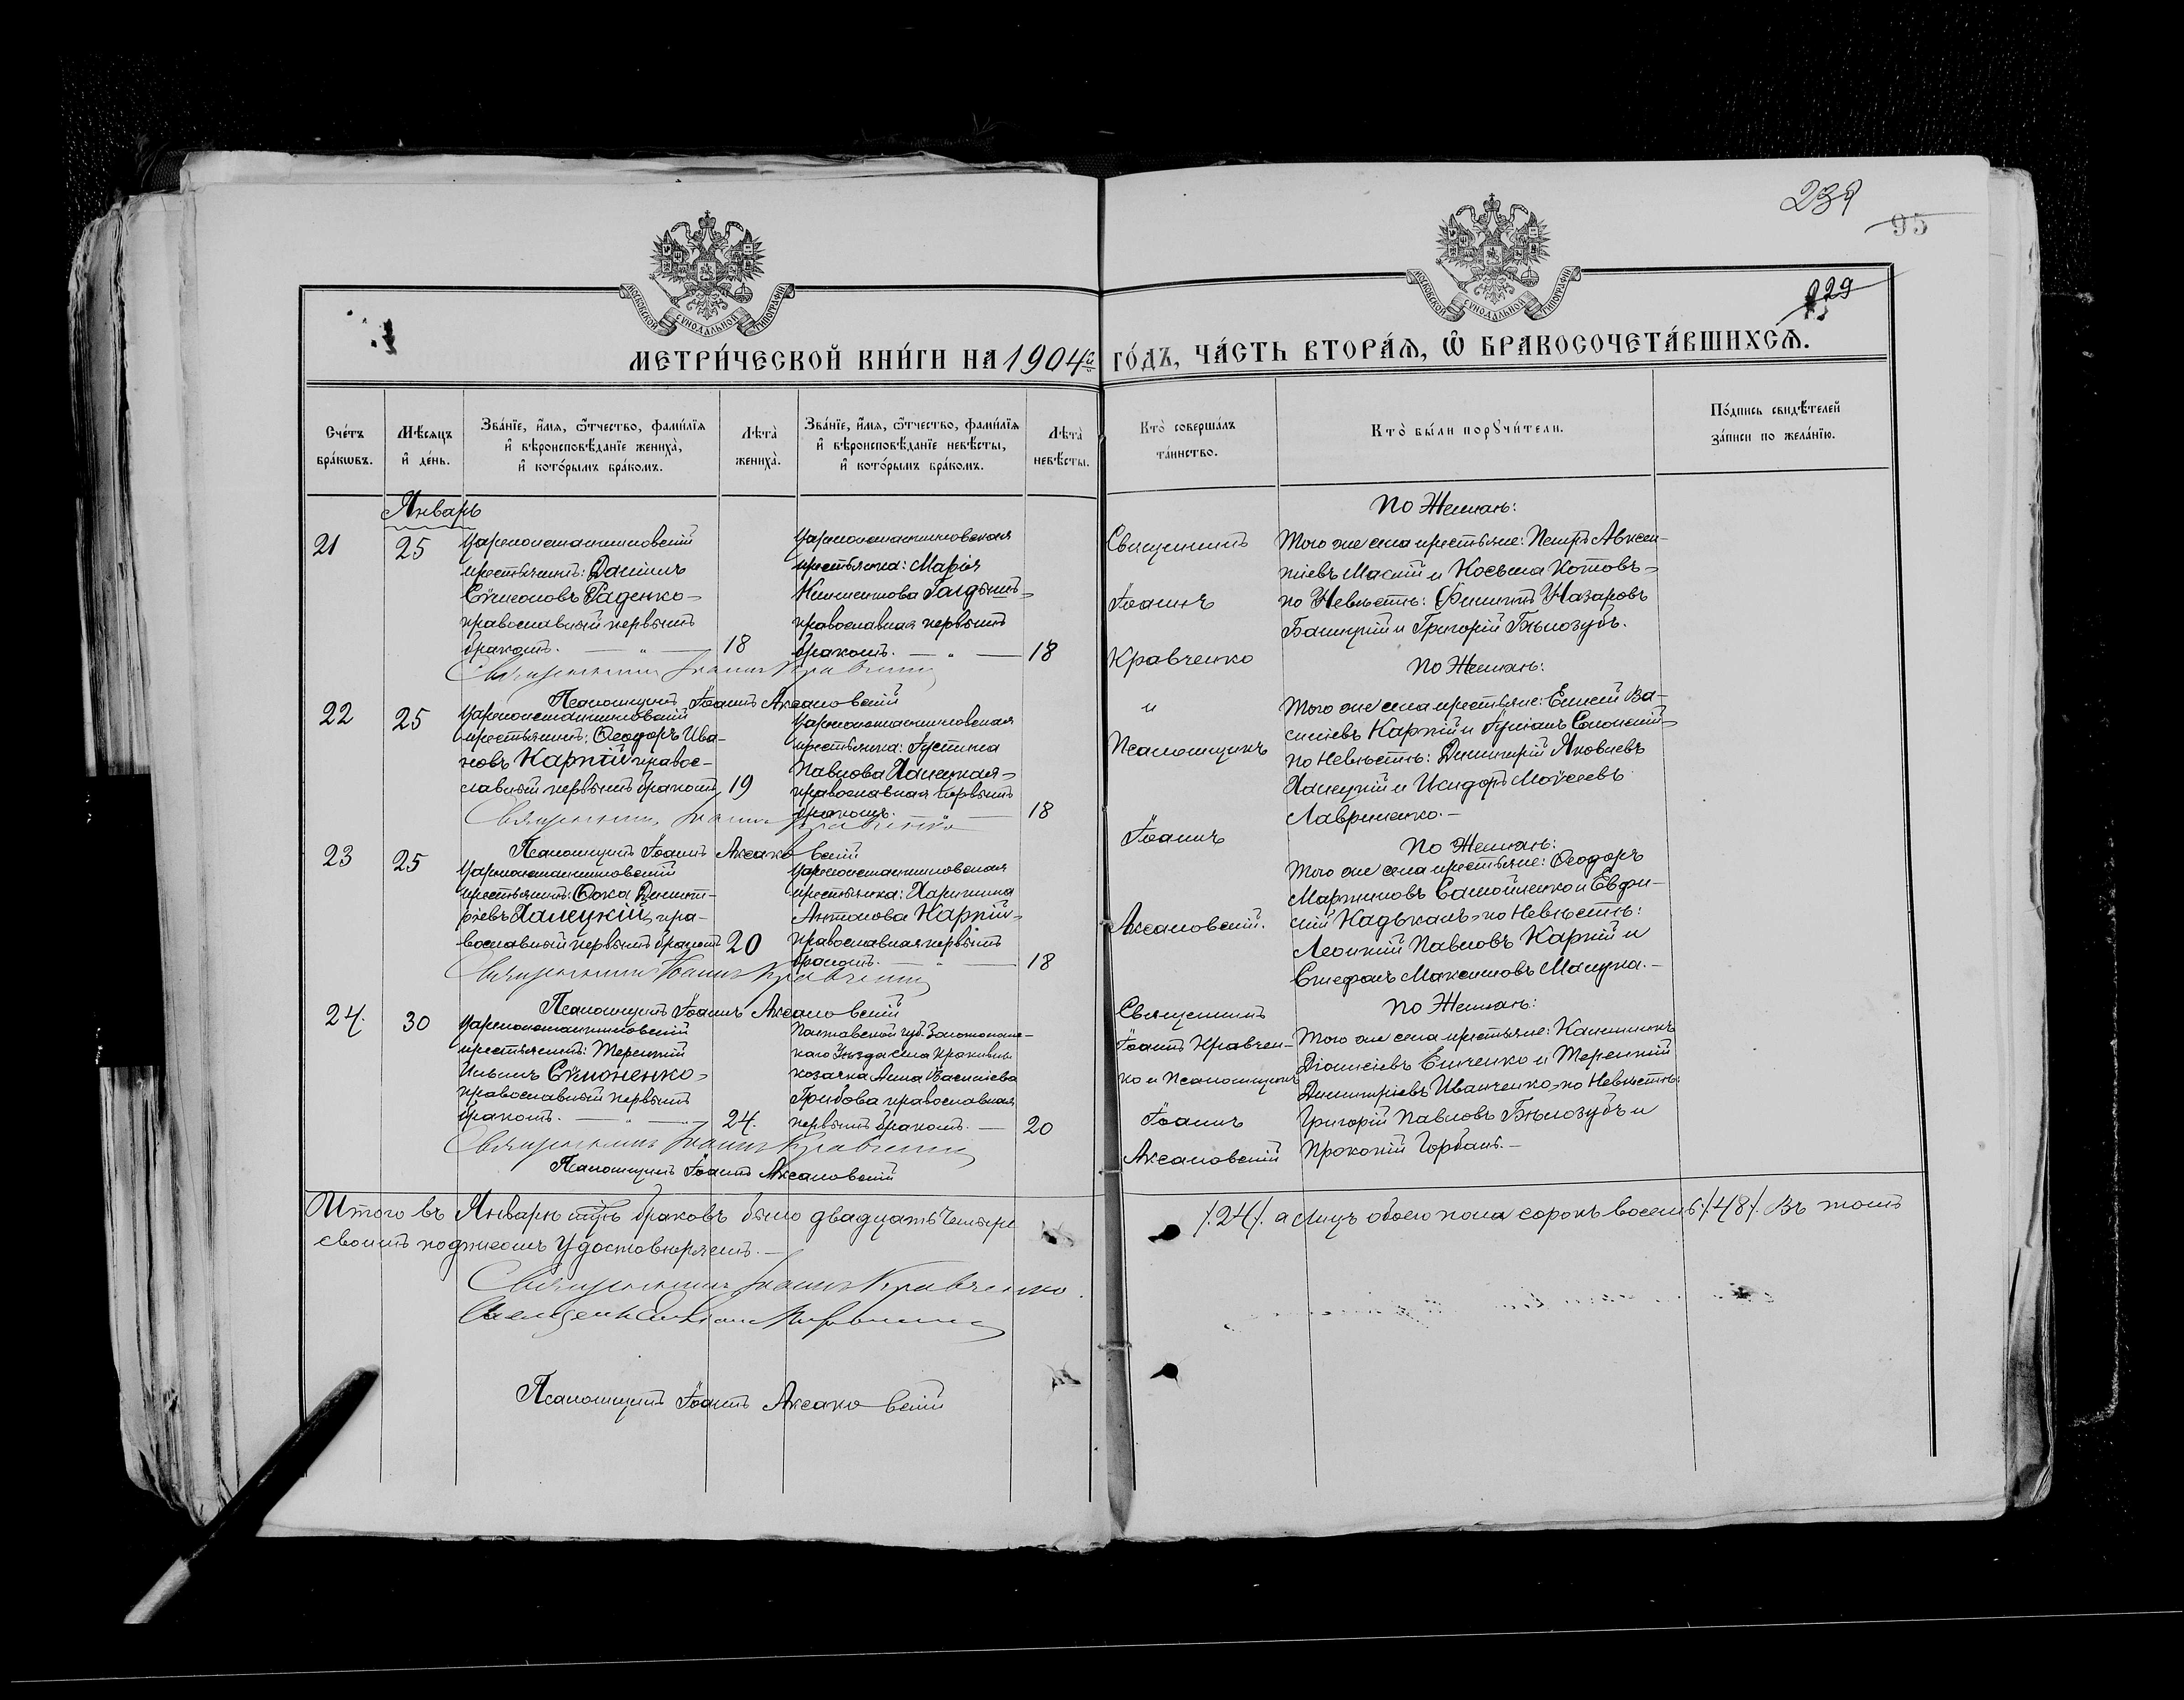 239
95
229
МОСКОВСКОЙ СѴНОДАЛЬНОЙ ТИПОГРАФІИ
МОСКОВСКОЙ СѴНОДАЛЬНОЙ ТИПОГРАФІИ
МЕТРИ́ЧЕСКОЙ КНИ́ГИ НА 1904 й ГО́ДЪ, ЧА́СТЬ ВТОРА́Ѧ, Ѽ БРАКОСОЧЕТА́ВШИХСѦ.
Сче́тъ бра́кѡвъ.
Мѣ́сяцъ и҆ де́нь.
Зва́нїе, и҆́мя, ѻ҆́тчество, фами́лїя и҆ вѣроисповѣ́данїе жениха̀, и҆ кото́рымъ бра́комъ.
Лѣта̀ жениха̀.
Зва́нїе, и҆́мя, ѻ҆́тчество, фами́лїя и҆ вѣроисповѣ́данїе невѣ́сты, и҆ кото́рымъ бра́комъ.
Лѣта̀ невѣ́сты.
Кто̀ соверша́лъ та́инство.
Кто̀ бы́ли порꙋчи́тели.
По́дпись свидѣ́телей за́писи по жела́нїю.
Январь
21
25
Цареконстантиновскій
крестьянинъ: Даніилъ
Сѵмеоновъ Раденко=
православный первымъ
бракомъ. — „ —
18
Цареконстантиновская
крестьянка: Марія
православная первымъ
бракомъ. — „ —
18
Священникъ
Іоаннъ
Кравченко
и
Псаломщикъ
Іоаннъ
Аксаковскій.
По Женихѣ:
Того же села крестьяне: Петръ Авксен-
тіевъ Масній и Косьма Котовъ=
по Невѣстѣ: Филиппъ Назаровъ
и Григорій Бѣлозубъ.
Священникъ Іоаннъ Кравченко
Псаломщикъ Іоаннъ Аксаковскій
22
25
Цареконстантиновскій
крестьянинъ: Ѳеодоръ Ива-
новъ Карпій правос-
лавный первымъ бракомъ
19
Цареконстантиновская
крестьянка: Іустина
Павлова Халецкая=
православная первымъ
бракомъ.
18
По Женихѣ:
Того же села крестьяне: Елисей Ва-
силіевъ Карпій и Іуліанъ
по Невѣстѣ: Димитрій Яковлевъ
Халецкій и Исидоръ Моѵсеевъ
Лавриненко. —
Священникъ Іоаннъ Кравченко
Псаломщикъ Іоаннъ Аксаковскій
23
25
Цареконстантиновскій
крестьянинъ: Ѳока Димит-
ріевъ Халецкій, пра-
вославный первымъ бракомъ
20
Цареконстантиновская
крестьянка: Харитина
Антонова Карпій=
православная первымъ
бракомъ. — „ —
18
По Женихѣ:
Того же села крестьяне: Ѳеодоръ
Мартиновъ Самойленко и Евфи-
мій Кадькаль=по Невѣстѣ:
Леонтій Павловъ Карпій и
Стефанъ Максимовъ Мацука. —
Священникъ Іоаннъ Кравченко
Псаломщикъ Іоаннъ Аксаковскій
24.
30
Цареконстантиновскій
крестьянинъ: Терентій
Ильинъ Сѵмоненко=
православный первымъ
бракомъ. — „ —
24.
Полтавской губ. Золотонош-
скаго Уѣзда села Кропивны
козачка Анна Василіева
Грибова православная
первымъ бракомъ. —
20
Священникъ
Іоаннъ Кравчен-
ко и Псаломщикъ
Іоаннъ
Аксаковскій
По Женихѣ:
Того же села крестьяне: Каллиникъ
Діонисіевъ и Терентій
Димитріевъ Иванченко=по Невѣстѣ:
Григорій Павловъ Бѣлозубъ и
Прокопій Горбань. —
Священникъ Іоаннъ Кравченко
Псаломщикъ Іоаннъ Аксаковскій
Итого въ Январѣ мцѣ браковъ было двадцать четыре /.24/. а лицъ обоего пола сорокъ восемь /.48/. Въ томъ
своимъ подписомъ удостовѣряемъ. —
Священникъ Іоаннъ Кравченко.
Псаломщикъ Іоаннъ Аксаковскій